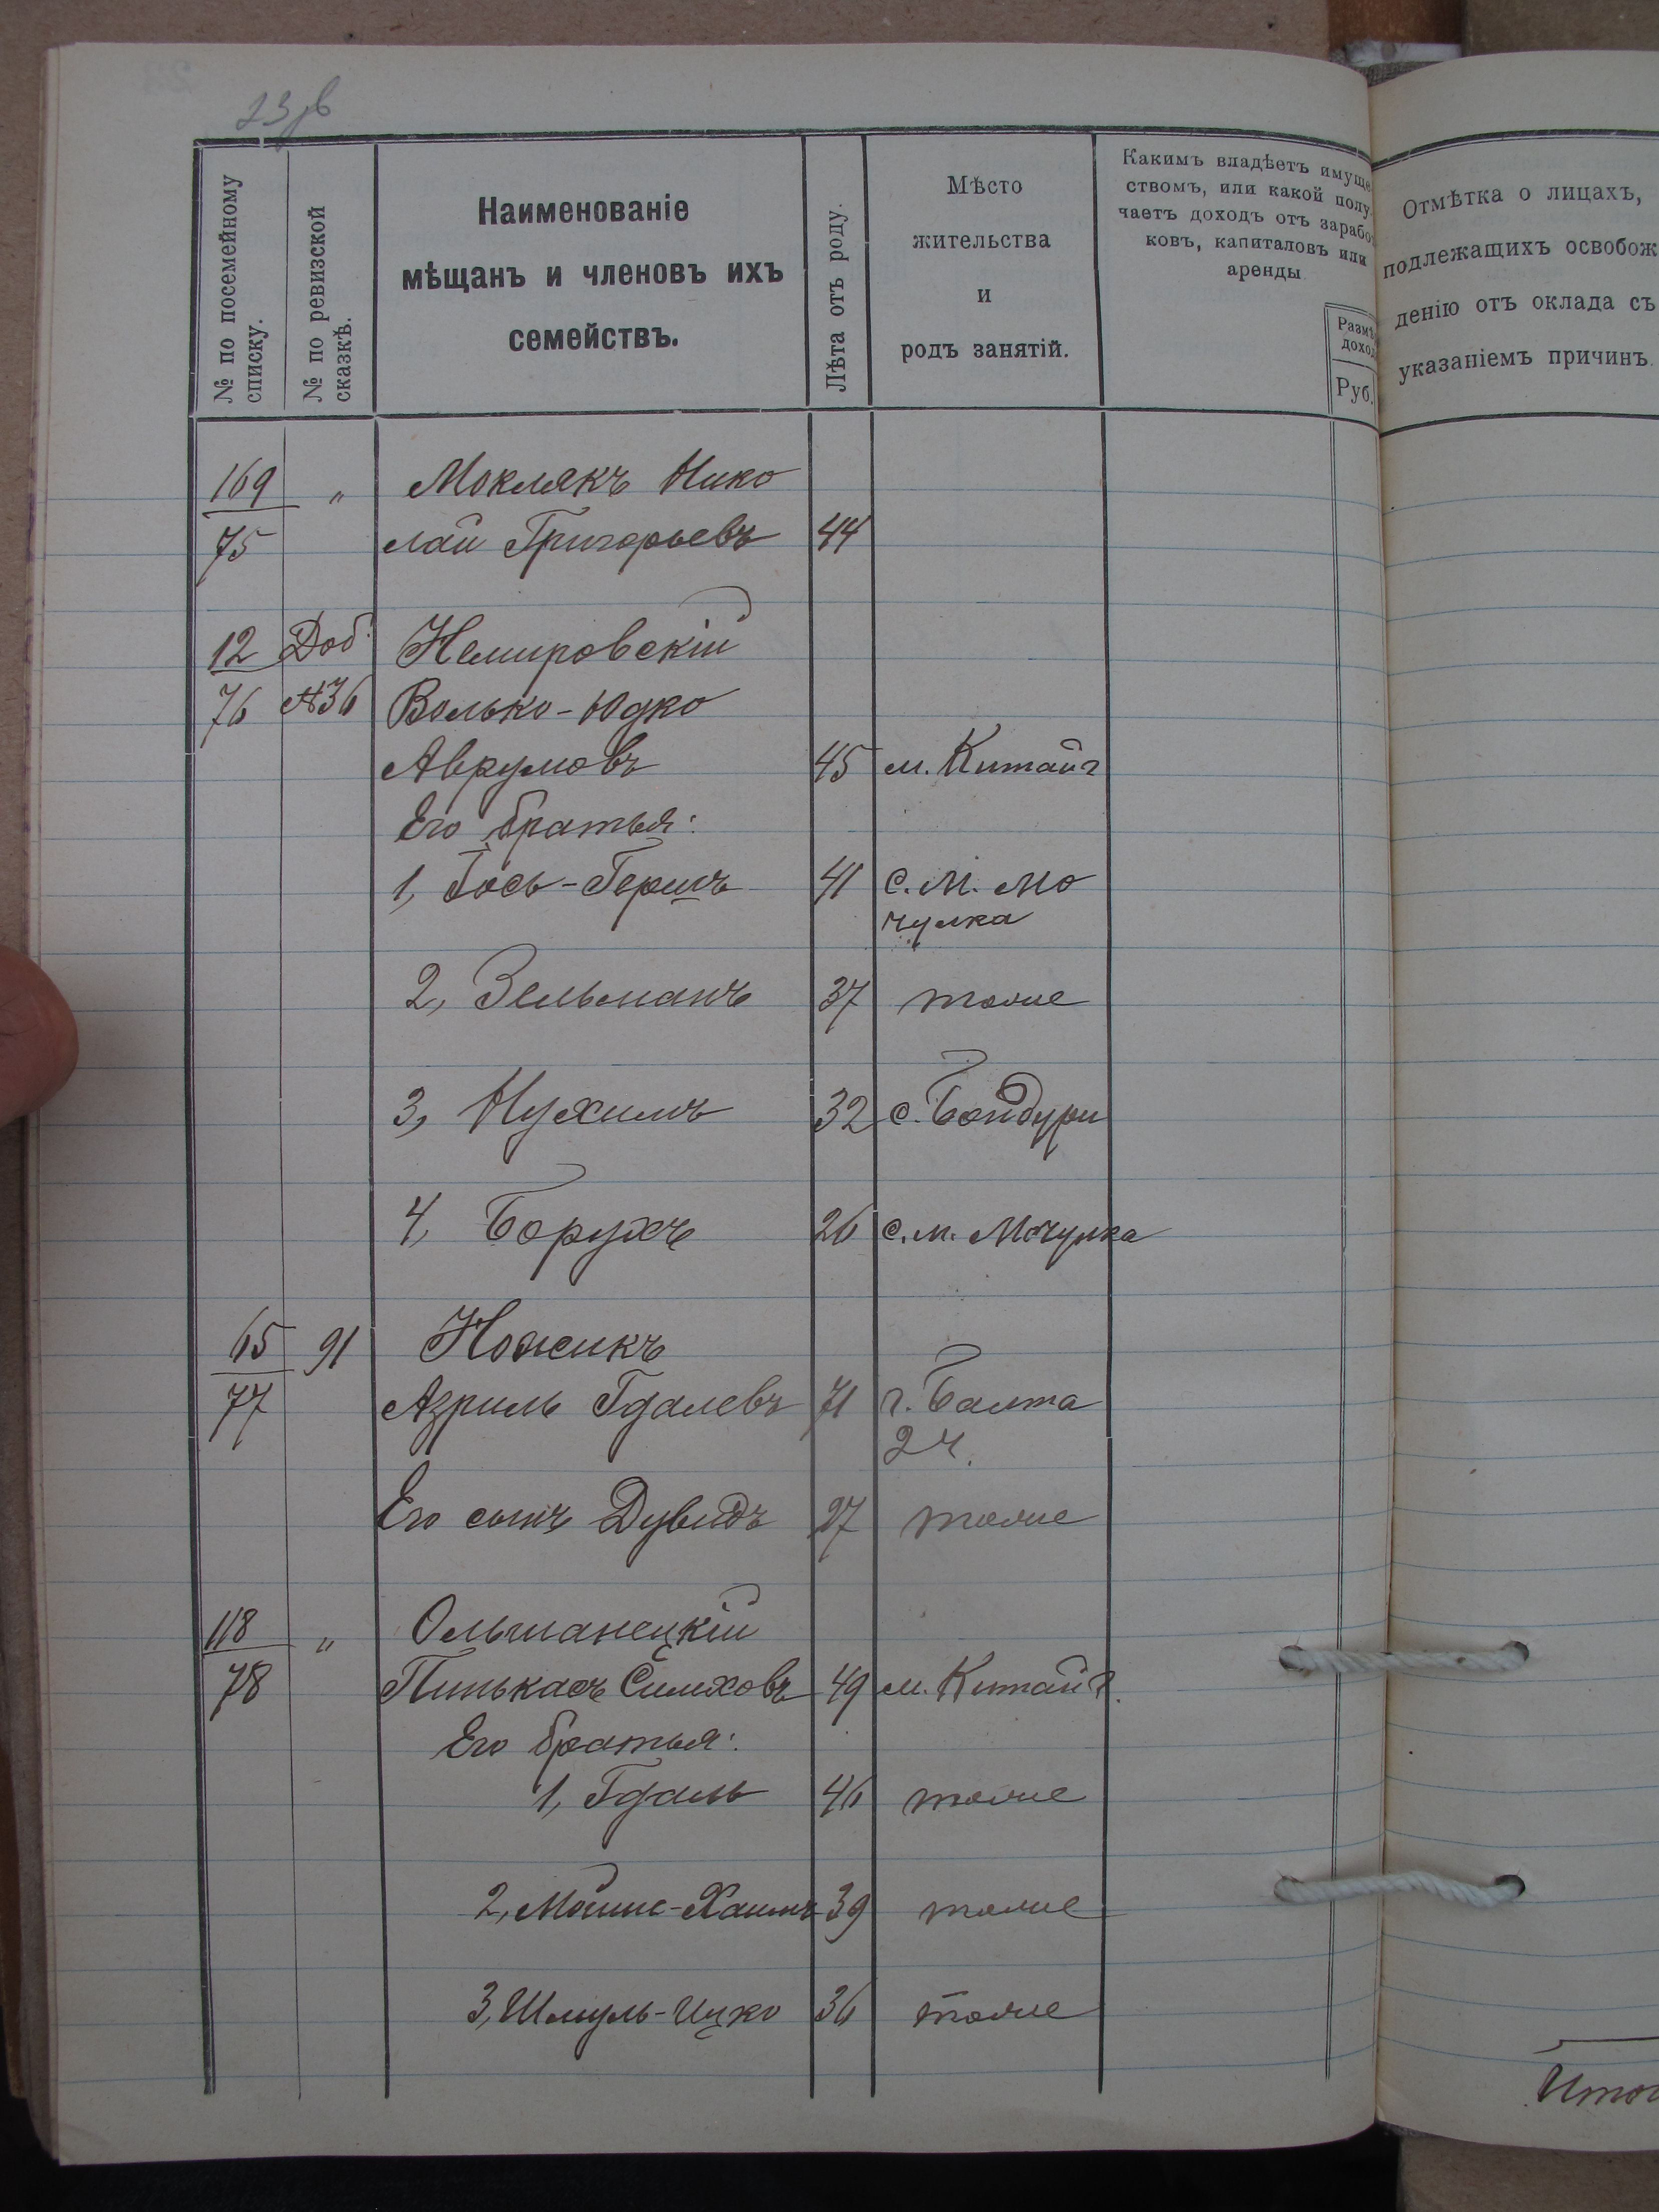 23 об
№ по посемейному списку.
№ по ревизской сказкѣ.
Наименованіе
мѣщанъ и членовъ ихъ
семействъ.
Лѣта отъ роду.
Мѣсто
жительства
и
родъ занятій.
Какимъ владѣетъ имуще
ствомъ, или какой полу
чаетъ доходъ отъ зарабо
ковъ, капиталовъ или
аренды
Руб.
Отмѣтка о лицахъ,
подлежащихъ освобож
денію отъ оклада съ
указаніемъ причинъ.
169 „ Моклякъ Нико
75 лай Григорьевъ 44
12 Доб. Немировскій
76 №36 Волько-Юдко
Аврумовъ 45 м. Китайг
Его братья:
1, Іось-Гершъ 41 с. М. Мо
чулка
2, Зельманъ 37 тоже
3, Нухимъ 32 с. Бондури
4, Борухъ 26 с. м. Мочулка
65 91 Ножикъ
77 Азриль Гдалевъ 71 г. Балта
2 ч.
Его сынъ Дувидъ 27 тоже
118 „ Ольшанецкій
78 Пинькасъ Симховъ 49 м. Китайг.
Его братья:
1, Гдаль 46 тоже
2, Мойше-Хаимъ 39 тоже
3, Шмуль-Ицко 36 тоже